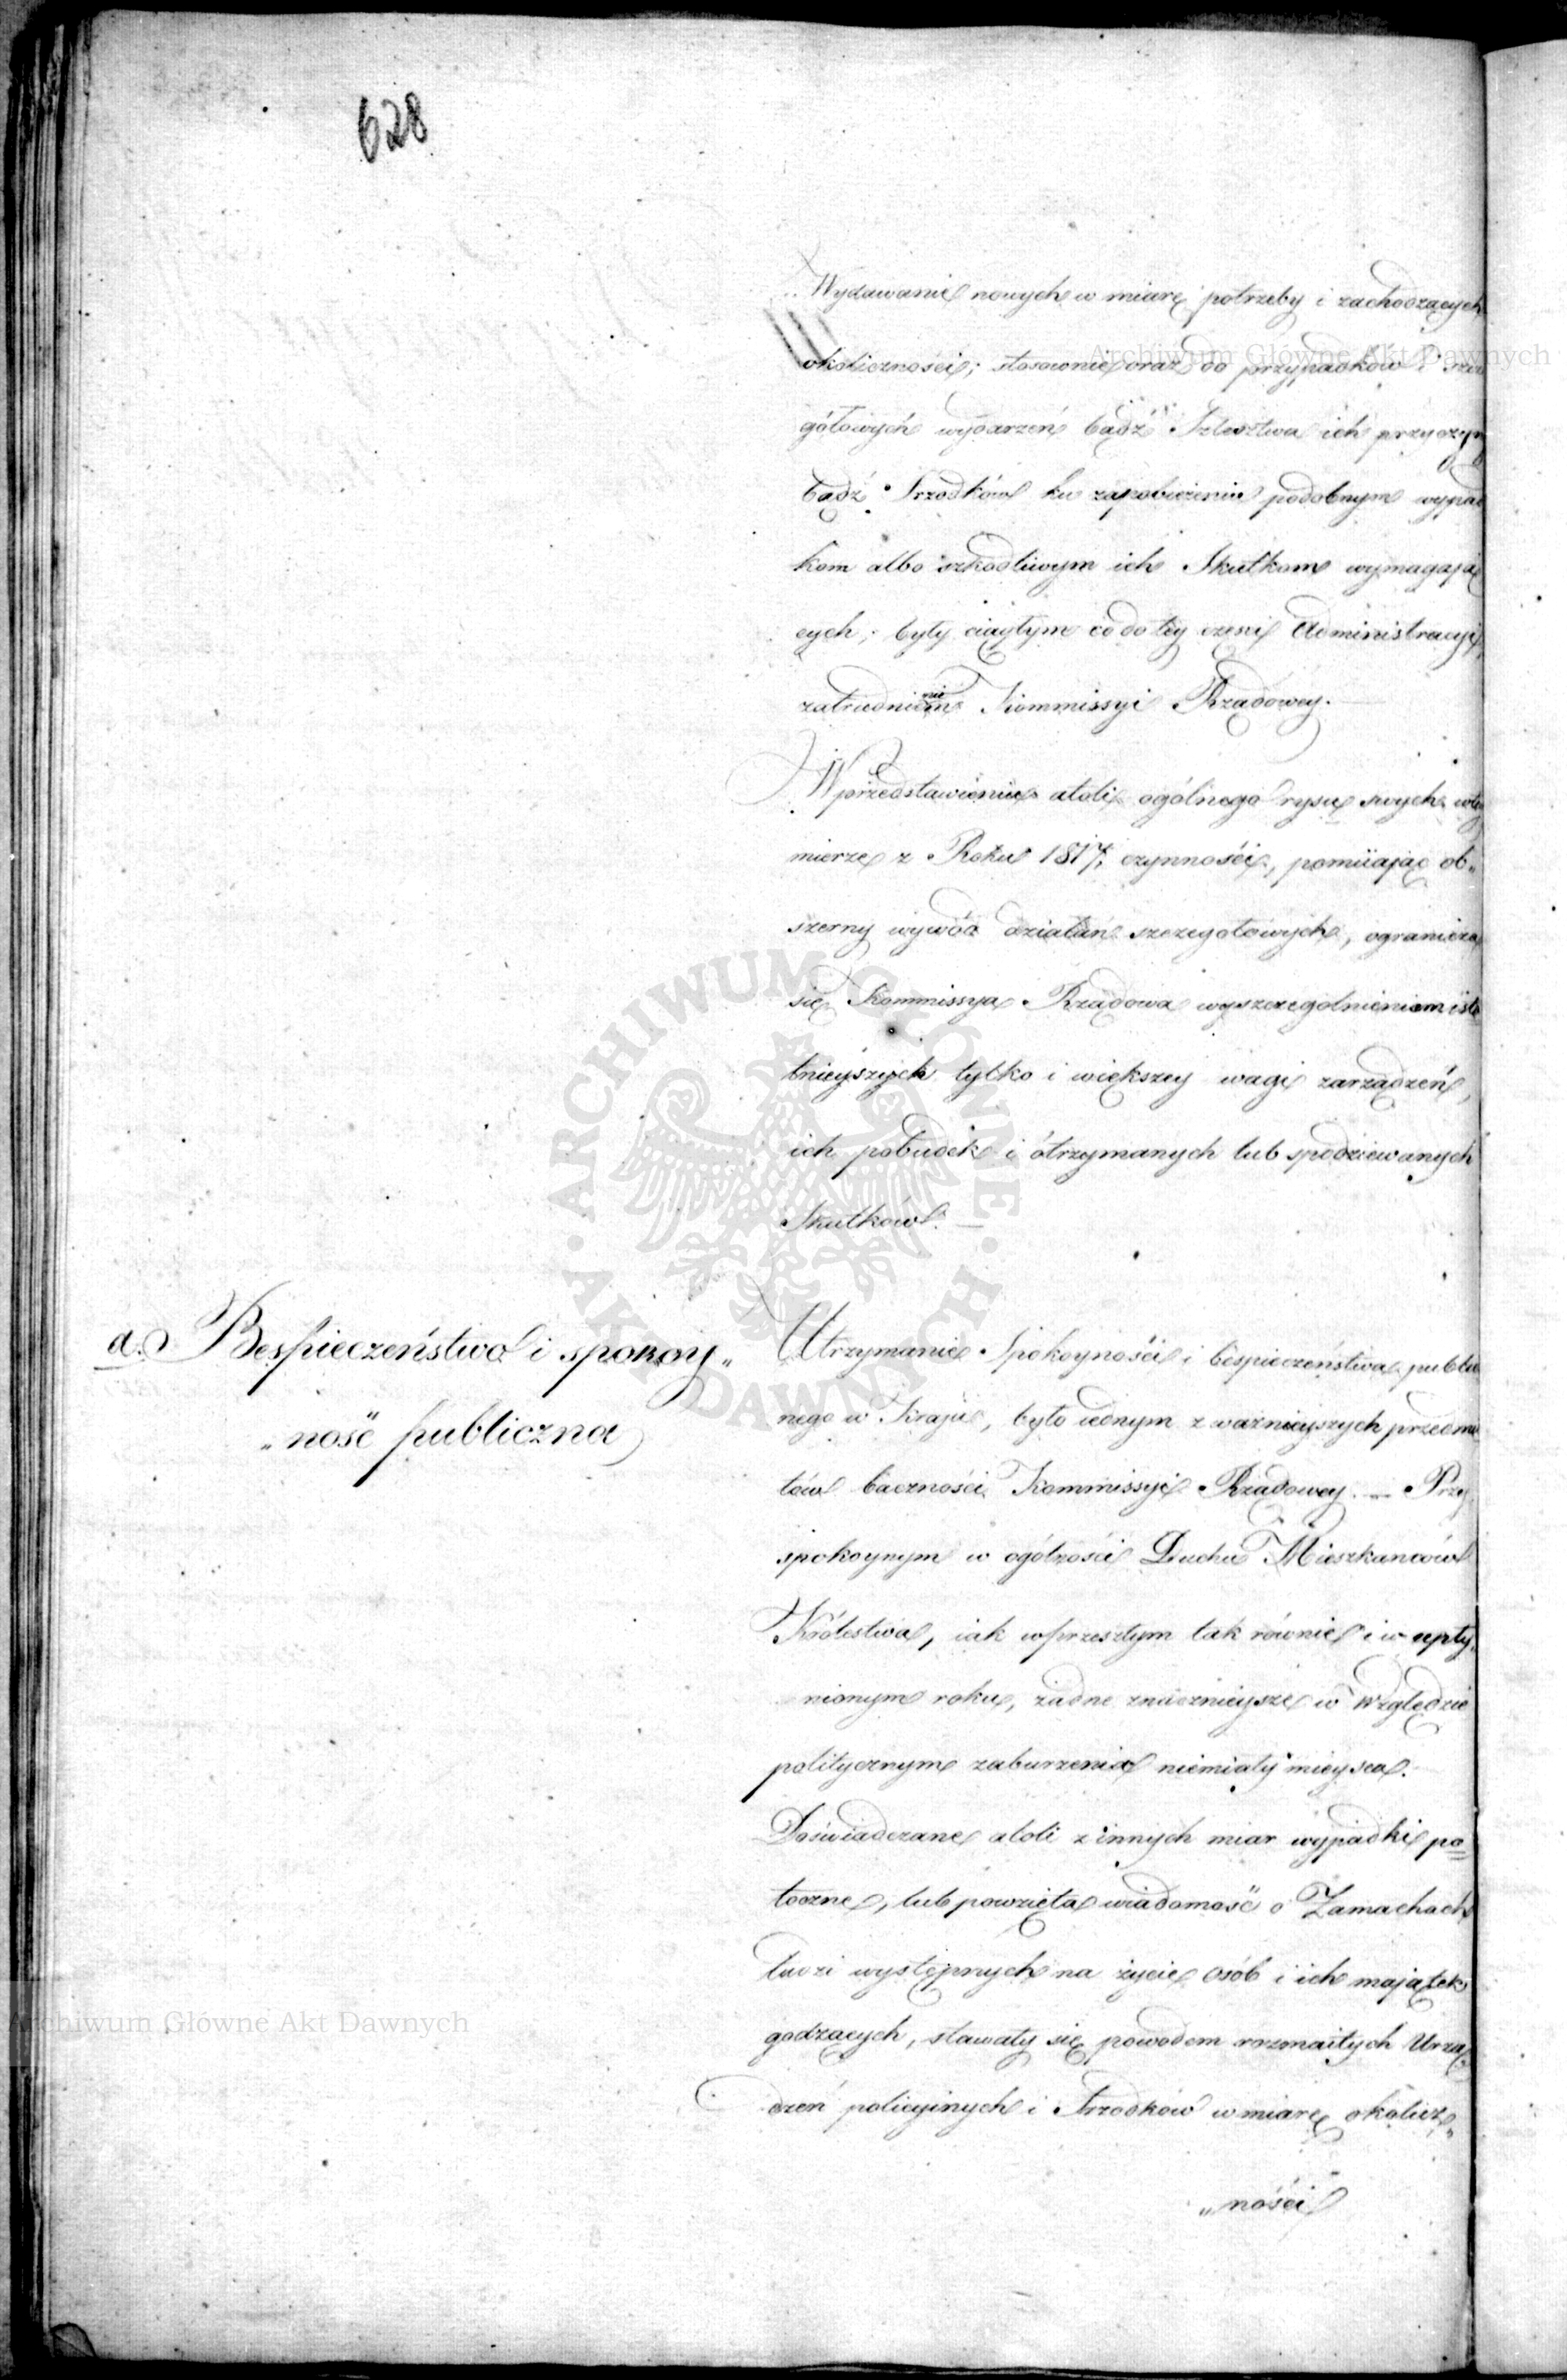 628
Wydawanie nowych w miarę potrzeby i zachodzących
okoliczności; stosownie oraz do przypadków i szcze
gółowych wydarzeń bądź Szledztwa ich przyczyn
bądź Srzodków ku zapobieżeniu podobnym wypad
kom albo szkodliwym ich Skutkom wymagają
cych; były ciągłym co do tey części Administracyi
zatrudnieniem Kommissyi Rządowey.
W przedstawieniu atoli ogólnego rysu swych w tey
mierze z Roku 1817, czynności, pomiiaiąc ob„
szerny wywód działań szczegołowych, ogranicza
się Kommissya Rządowa wyszczegolnieniem isto
tnieyszych tylko i większey wagi zarządzeń,
ich pobudek i otrzymanych lub spodziewanych
Skutków. —
a. Bespieczeństwo i spokoy„
„ność publiczna
Utrzymanie Spokoyności i bespieczeństwa public
nego w Kraju, było iednym z ważnieyszych przedmio
tów baczności Kommissyi Rządowey. — Przy
spokoynym w ogólności Duchu Mieszkancow
Królestwa, iak w przeszłym tak równie i w upły„
nionym roku, żadne znacznieysze w względzie
politycznym zaburzenia niemiały mieysca.
Doświadczane atoli z innych miar wypadki po=
toczne, lub powzięta wiadomość o Zamachach
ludzi występnych na życie osób i ich maiątek
godzących, stawały się powodem rozmaitych Urzą
dzeń policyinych i Srzodków w miarę okolicz„
„ności
Archiwum Główne Akt Dawnych
ARCHIWUM GŁÓWNE AKT DAWNYCH
Archiwum Główne Akt Dawnych